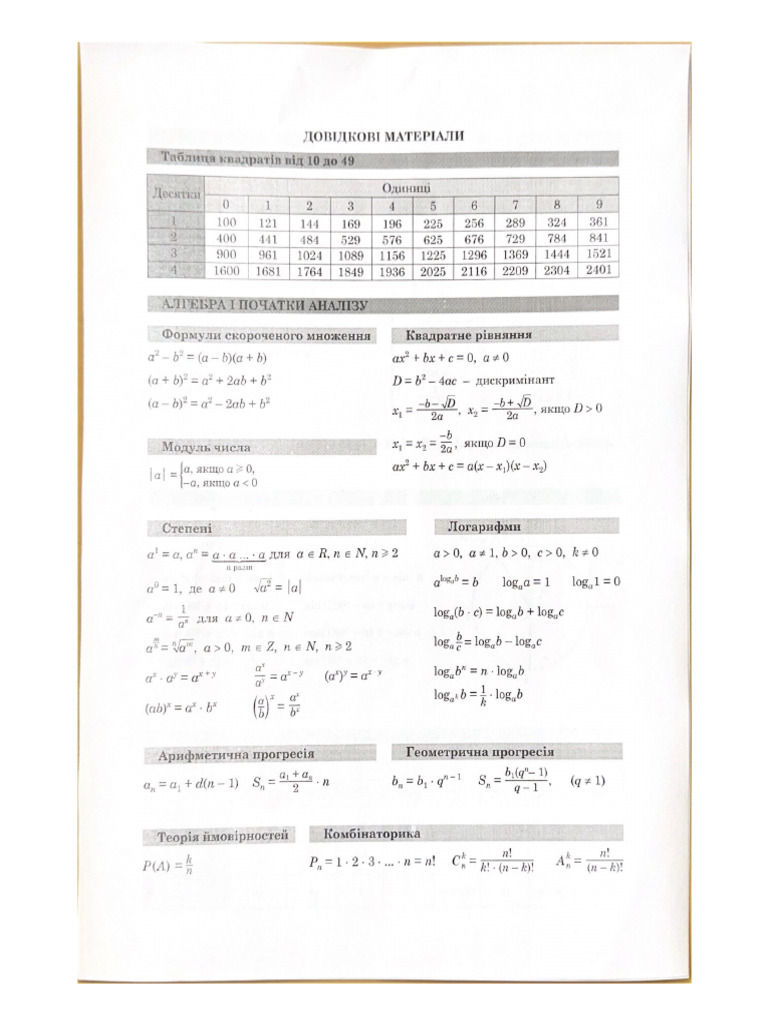 ДОВІДКОВІ МАТЕРІАЛИ
Таблиця квадратів від 10 до 49
Десятки Одиниці
0 1 2 3 4 5 6 7 8 9
1 100 121 144 169 196 225 256 289 324 361
2 400 441 484 529 576 625 676 729 784 841
3 900 961 1024 1089 1156 1225 1296 1369 1444 1521
4 1600 1681 1764 1849 1936 2025 2116 2209 2304 2401
АЛГЕБРА І ПОЧАТКИ АНАЛІЗУ
Формули скороченого множення
a² – b² = (a – b)(a + b)
(a + b)² = a² + 2ab + b²
(a – b)² = a² – 2ab + b²
Квадратне рівняння
ax² + bx + c = 0, a ≠ 0
D = b² – 4ac – дискримінант
x₁ = (–b – √D)/2a, x₂ = (–b + √D)/2a, якщо D > 0
x₁ = x₂ = –b/2a, якщо D = 0
ax² + bx + c = a(x – x₁)(x – x₂)
Модуль числа
|a| = { a, якщо a ⩾ 0,
–a, якщо a < 0
Степені
a¹ = a, aⁿ = a · a ... · a для a ∈ R, n ∈ N, n ⩾ 2
n разів
a⁰ = 1, де a ≠ 0 √a² = |a|
a⁻ⁿ = 1/aⁿ для a ≠ 0, n ∈ N
a^(m/n) = ⁿ√aᵐ, a > 0, m ∈ Z, n ∈ N, n ⩾ 2
aˣ · aʸ = aˣ⁺ʸ aˣ/aʸ = aˣ⁻ʸ (aˣ)ʸ = a^(x · y)
(ab)ˣ = aˣ · bˣ (a/b)ˣ = aˣ/bˣ
Логарифми
a > 0, a ≠ 1, b > 0, c > 0, k ≠ 0
a^(logₐb) = b logₐa = 1 logₐ1 = 0
logₐ(b · c) = logₐb + logₐc
logₐ b/c = logₐb – logₐc
logₐbⁿ = n · logₐb
log_(aᵏ) b = 1/k · logₐb
Арифметична прогресія
aₙ = a₁ + d(n – 1) Sₙ = (a₁ + aₙ)/2 · n
Геометрична прогресія
bₙ = b₁ · qⁿ⁻¹ Sₙ = b₁(qⁿ – 1)/(q – 1), (q ≠ 1)
Теорія ймовірностей
P(A) = k/n
Комбінаторика
Pₙ = 1 · 2 · 3 · ... · n = n! Cₙᵏ = n!/(k! · (n – k)!) Aₙᵏ = n!/(n – k)!